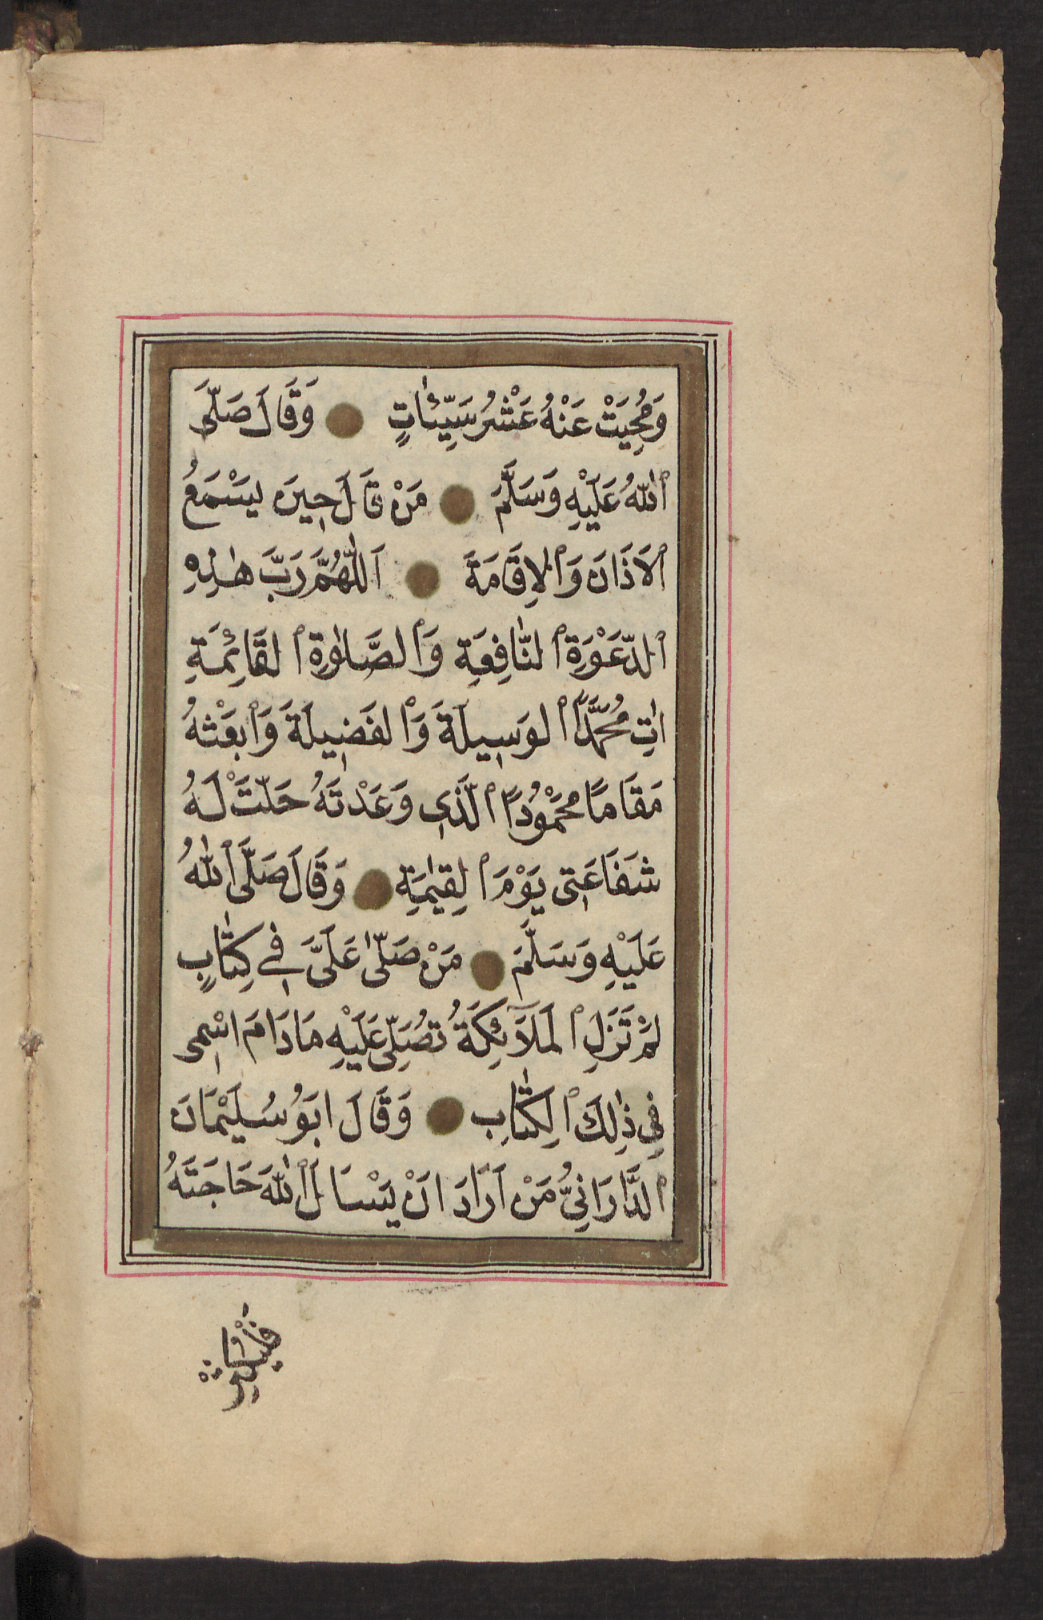 وَمُحِيَتْ عَنْهُ عَشْرُ سَيِّئَاتٍ وَقَالَ صَلَّى
ٱللّٰهُ عَلَيْهِ وَسَلَّمَ مَنْ قَالَ حِينَ يَسْمَعُ
ٱلاَذَانَ وَٱلاِقَامَةَ اَللّٰهُمَّ رَبَّ هٰذِهِ
ٱلدَّعْوَةِ ٱلنَّافِعَةِ وَٱلصَّلٰوةِ ٱلقَائِمَةِ
اٰتِ مُحَمَّدًا ٱلوَسِيلَةَ وَٱلفَضِيلَةَ وَٱبعَثْهُ
مَقَامًا مَحْمُودًا ٱلَّذِى وَعَدْتَهُ حَلَّتْ لَهُ
شَفَاعَتِى يَوْمَ ٱلقِيٰمَةِ وَقَالَ صَلَّى ٱللّٰهُ
عَلَيْهِ وَسَلَّمَ مَنْ صَلّٰى عَلَىَّ فِي كِتَابٍ
لَمْ تَزَلِ ٱلمَلَآئِكَةُ تُصَلِّى عَلَيْهِ مَا دَامَ اسْمِى
فِي ذٰلِكَ ٱلكِتَابِ وَقَالَ ابَوُ سُلَيْمَانَ
ٱلدَّارَانِىُّ مَنْ اَرَادَ انْ يَسْاَلَ ٱللّٰهَ حَاجَتَهُ
فَلْيُكْثِرْ